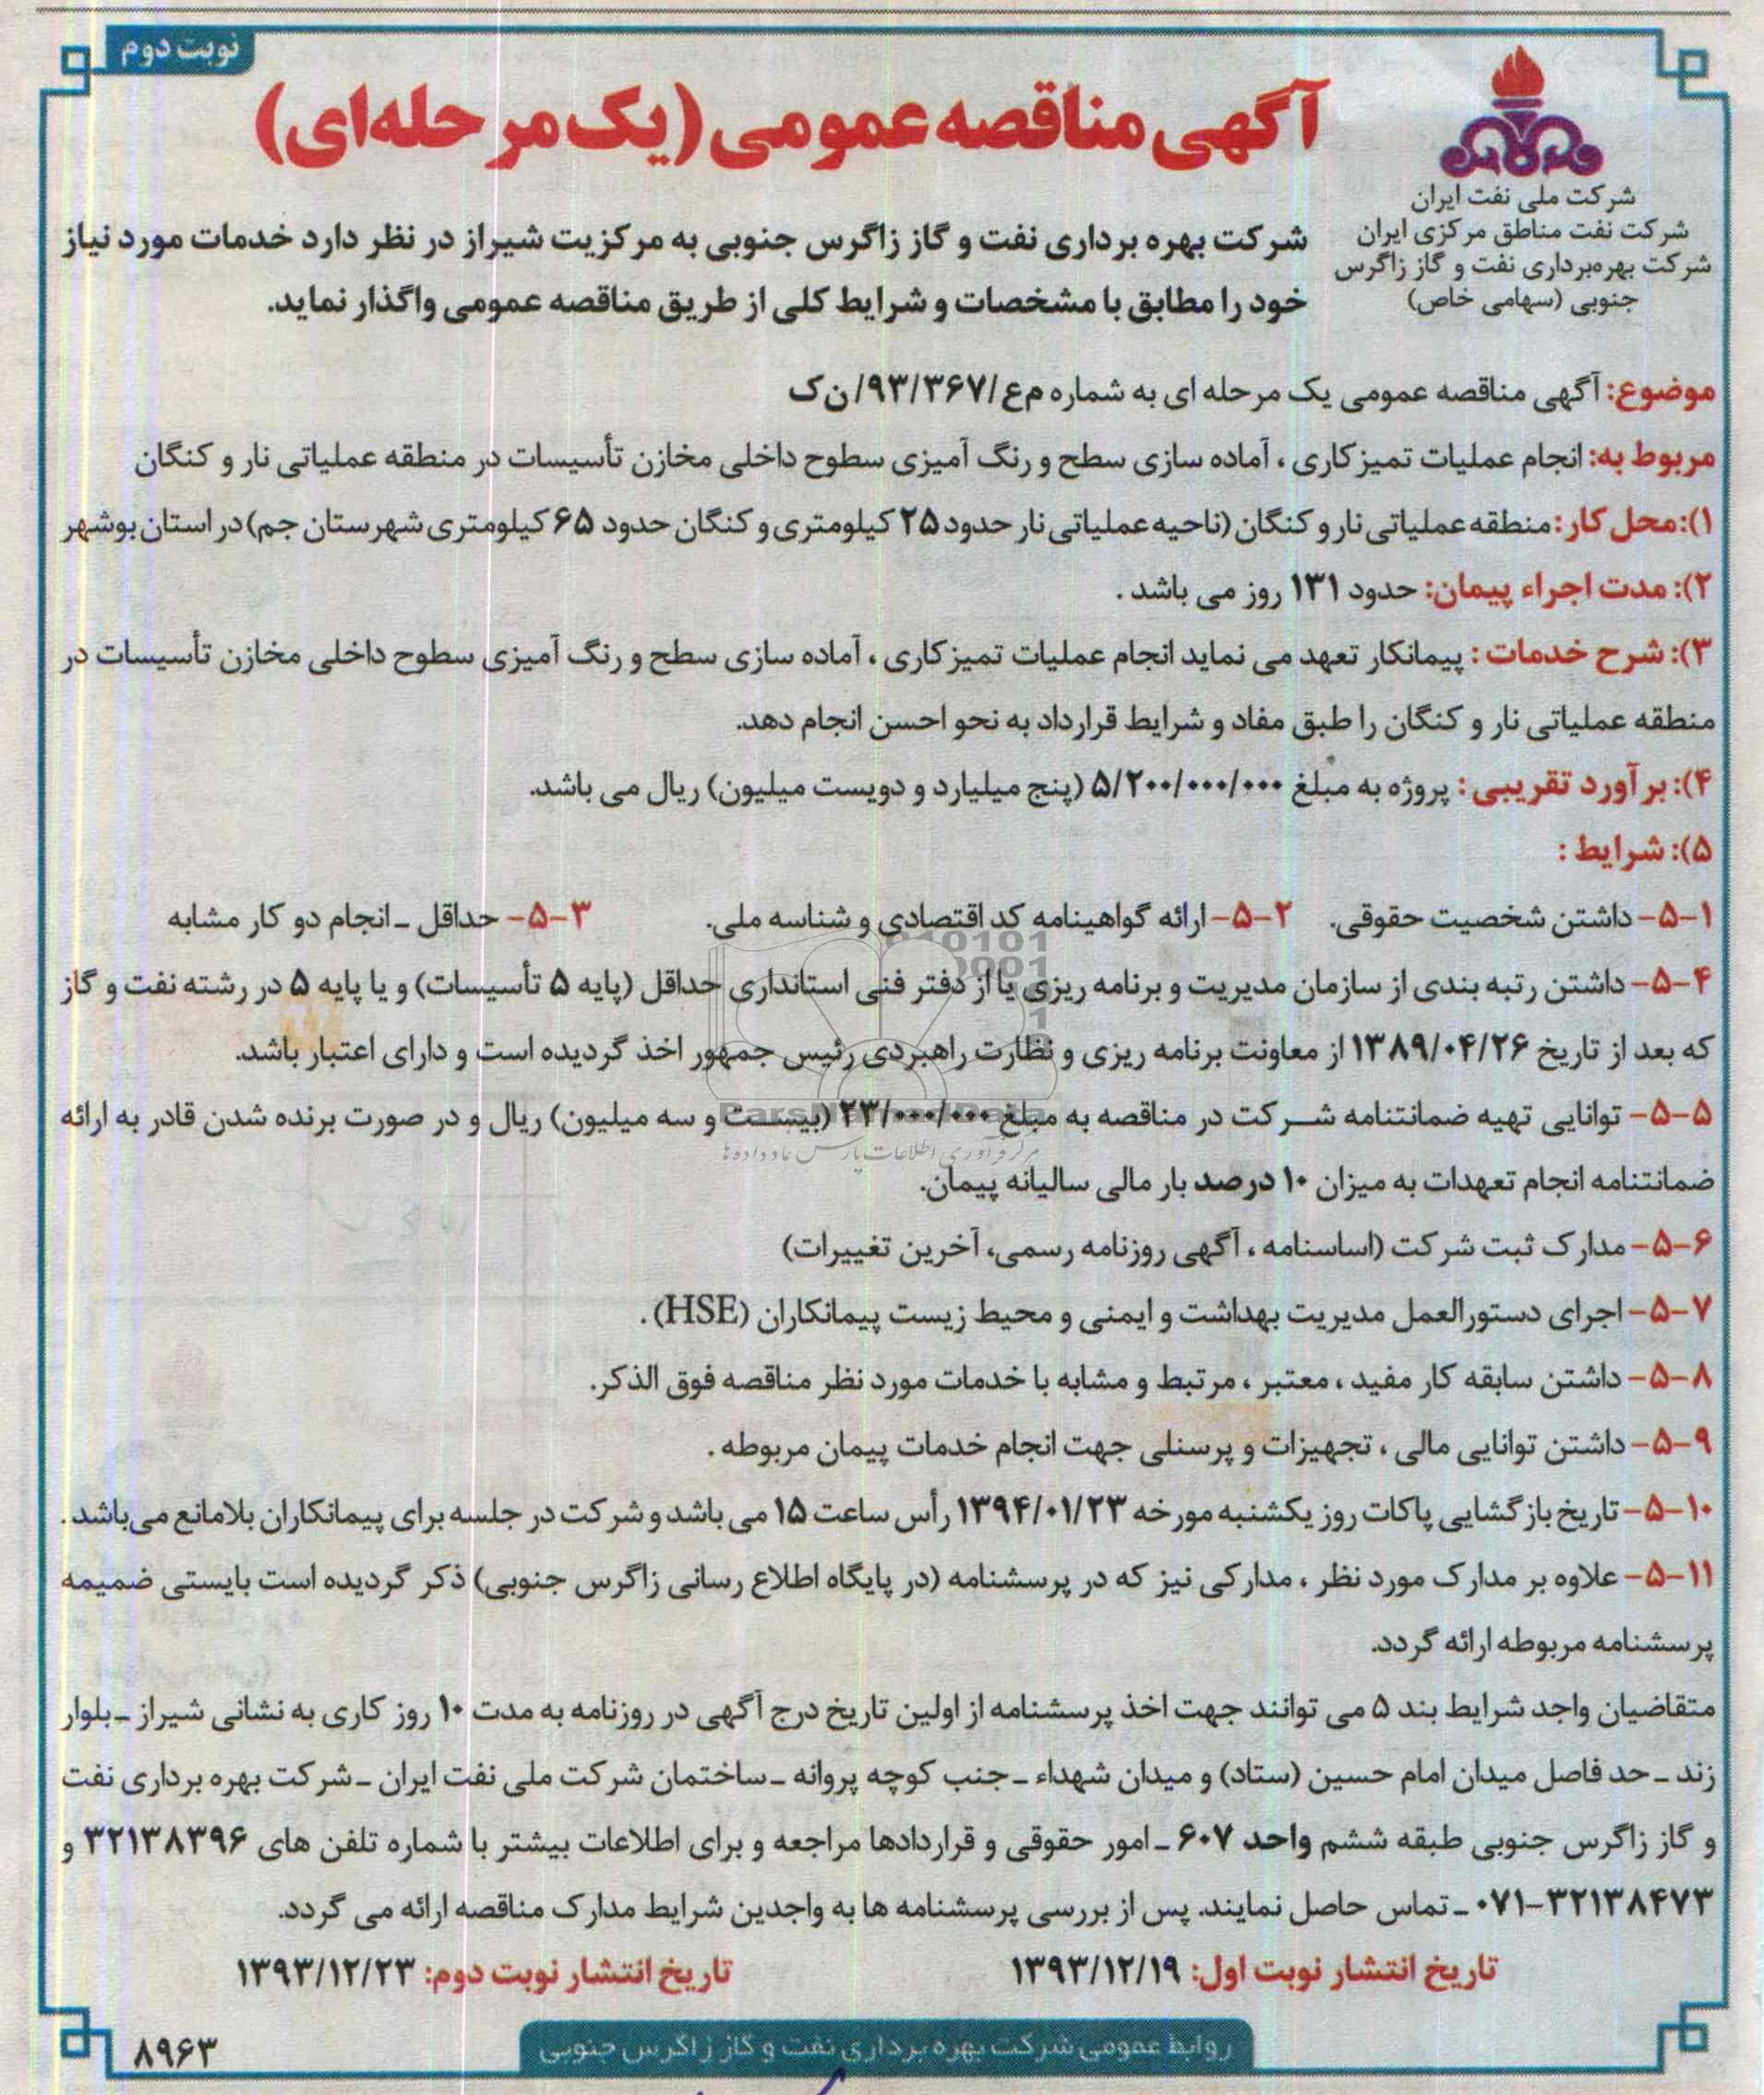 نوبت دوم
آگهی مناقصه عمومی (یک مرحله‌ای)
شرکت ملی نفت ایران
شرکت نفت مناطق مرکزی ایران
شرکت بهره‌برداری نفت و گاز زاگرس
جنوبی (سهامی خاص)
شرکت بهره برداری نفت و گاز زاگرس جنوبی به مرکزیت شیراز در نظر دارد خدمات مورد نیاز
خود را مطابق با مشخصات و شرایط کلی از طریق مناقصه عمومی واگذار نماید.
موضوع: آگهی مناقصه عمومی یک مرحله ای به شماره م‌ع/۹۳/۳۶۷/ن‌ک
مربوط به: انجام عملیات تمیزکاری ، آماده سازی سطح و رنگ آمیزی سطوح داخلی مخازن تأسیسات در منطقه عملیاتی نار و کنگان
۱): محل کار: منطقه عملیاتی نار و کنگان (ناحیه عملیاتی نار حدود ۲۵ کیلومتری و کنگان حدود ۶۵ کیلومتری شهرستان جم) در استان بوشهر
۲): مدت اجراء پیمان: حدود ۱۳۱ روز می باشد .
۳): شرح خدمات : پیمانکار تعهد می نماید انجام عملیات تمیزکاری ، آماده سازی سطح و رنگ آمیزی سطوح داخلی مخازن تأسیسات در
منطقه عملیاتی نار و کنگان را طبق مفاد و شرایط قرارداد به نحو احسن انجام دهد.
۴): برآورد تقریبی : پروژه به مبلغ ۵/۲۰۰/۰۰۰/۰۰۰ (پنج میلیارد و دویست میلیون) ریال می باشد.
۵): شرایط :
۱-۵- داشتن شخصیت حقوقی. ۲-۵- ارائه گواهینامه کد اقتصادی و شناسه ملی. ۳-۵- حداقل ـ انجام دو کار مشابه
۴-۵- داشتن رتبه بندی از سازمان مدیریت و برنامه ریزی یا از دفتر فنی استانداری حداقل (پایه ۵ تأسیسات) و یا پایه ۵ در رشته نفت و گاز
که بعد از تاریخ ۱۳۸۹/۰۴/۲۶ از معاونت برنامه ریزی و نظارت راهبردی رئیس جمهور اخذ گردیده است و دارای اعتبار باشد.
۵-۵- توانایی تهیه ضمانتنامه شرکت در مناقصه به مبلغ ۲۳/۰۰۰/۰۰۰ (بیست و سه میلیون) ریال و در صورت برنده شدن قادر به ارائه
ضمانتنامه انجام تعهدات به میزان ۱۰ درصد بار مالی سالیانه پیمان.
۶-۵- مدارک ثبت شرکت (اساسنامه ، آگهی روزنامه رسمی، آخرین تغییرات)
۷-۵- اجرای دستورالعمل مدیریت بهداشت و ایمنی و محیط زیست پیمانکاران (HSE) .
۸-۵- داشتن سابقه کار مفید ، معتبر ، مرتبط و مشابه با خدمات مورد نظر مناقصه فوق الذکر.
۹-۵- داشتن توانایی مالی ، تجهیزات و پرسنلی جهت انجام خدمات پیمان مربوطه .
۱۰-۵- تاریخ بازگشایی پاکات روز یکشنبه مورخه ۱۳۹۴/۰۱/۲۳ رأس ساعت ۱۵ می باشد و شرکت در جلسه برای پیمانکاران بلامانع می‌باشد .
۱۱-۵- علاوه بر مدارک مورد نظر ، مدارکی نیز که در پرسشنامه (در پایگاه اطلاع رسانی زاگرس جنوبی) ذکر گردیده است بایستی ضمیمه
پرسشنامه مربوطه ارائه گردد.
متقاضیان واجد شرایط بند ۵ می توانند جهت اخذ پرسشنامه از اولین تاریخ درج آگهی در روزنامه به مدت ۱۰ روز کاری به نشانی شیراز ـ بلوار
زند ـ حد فاصل میدان امام حسین (ستاد) و میدان شهداء ـ جنب کوچه پروانه ـ ساختمان شرکت ملی نفت ایران ـ شرکت بهره برداری نفت
و گاز زاگرس جنوبی طبقه ششم واحد ۶۰۷ ـ امور حقوقی و قراردادها مراجعه و برای اطلاعات بیشتر با شماره تلفن های ۳۲۱۳۸۳۹۶ و
۰۷۱-۳۲۱۳۸۴۷۳ ـ تماس حاصل نمایند. پس از بررسی پرسشنامه ها به واجدین شرایط مدارک مناقصه ارائه می گردد.
تاریخ انتشار نوبت اول: ۱۳۹۳/۱۲/۱۹ تاریخ انتشار نوبت دوم: ۱۳۹۳/۱۲/۲۳
روابط عمومی شرکت بهره برداری نفت و گاز زاگرس جنوبی
۸۹۶۳